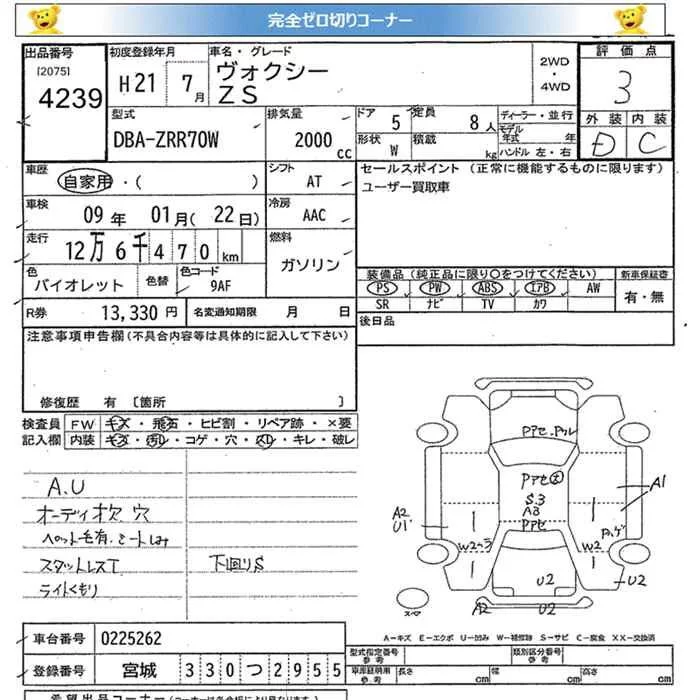 完全ゼロ切りコーナー
出品番号 初度登録年月 車名・グレード 評価点
[2075] 4239 H21 7月 ヴォクシー ZS 2WD・4WD 3
型式 排気量 ドア 定員 ディーラー・並行 外装 内装
DBA-ZRR70W 2000cc 5 8人 モデル年式 年 D C
形状 W 積載 kg ハンドル 左・右
車歴 シフト セールスポイント (正常に機能するものに限ります)
自家用・( ) AT ユーザー買取車
車検 冷房
09年 01月(22日) AAC
走行 燃料
12万6千470km ガソリン
色 色替 色コード 装備品(純正品に限り○をつけてください) 新車保証書
バイオレット 9AF PS PW ABS エアB AW 有・無
SR ナビ TV カワ
R券 13,330円 名変通知期限 月 日 後日品
注意事項申告欄(不具合内容等は具体的に記入して下さい)
修復歴 有 [箇所 ]
検査員 FW キズ・飛石・ヒビ割・リペア跡・×要
記入欄 内装 キズ・汚レ・コゲ・穴・スレ・キレ・破レ
A.U
オーディオ欠 穴
ペット毛有.シートしみ
スタットレスT 下回りS
ライトくもり
Pアセ.アル
Pアセ大
S.3
A3
Pアセ
A1
A2
U1
W2
W2
U2
U2
A2 U2
スペア
A-キズ E-エクボ U-凹み W-補修跡 S-サビ C-腐食 XX-交換済
車台番号 0225262 型式指定番号 参考 類別区分番号 参考
登録番号 宮城 330 つ 2955 車庫証明用 参考 長さ cm 幅 cm 高さ cm
希望出品コーナー